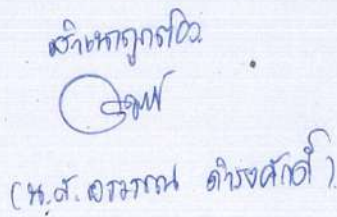 สำเนาถูกต้อง
(น.ส. อรวรรณ ดำรงศักดิ์)